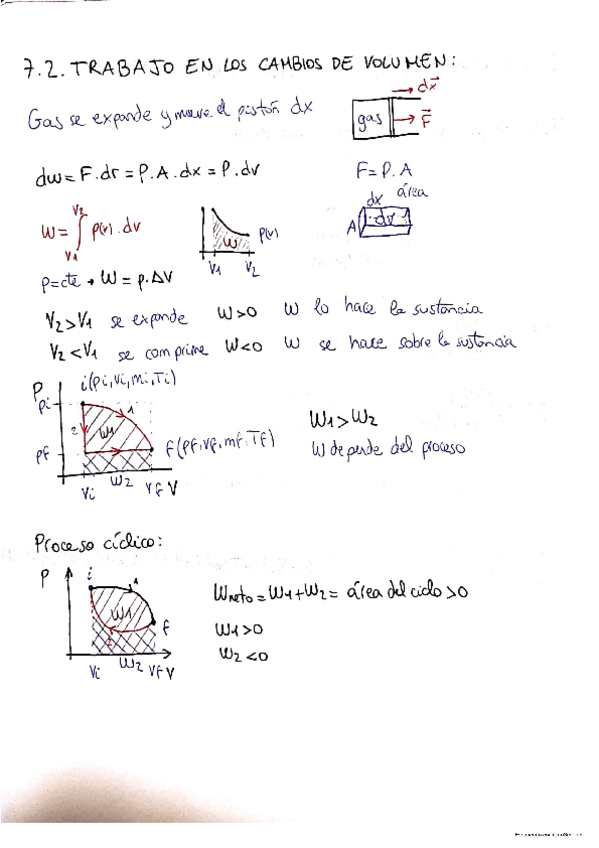 7.2. TRABAJO EN LOS CAMBIOS DE VOLUMEN:
Gas se expande y mueve el pistón dx
dx
gas
F
dw = F.dr = P.A.dx = P.dv
F = P.A
dx área
A dv
W = ∫ p(v).dv
V2
V1
W
P(v)
V1 V2
p=cte → W = p.ΔV
V2>V1 se expande W>0 W lo hace la sustancia
V2<V1 se comprime W<0 W se hace sobre la sustancia
P
i(pi,Vi,mi,Ti)
pi
1
2
W1
pf
f(Pf,Vf,mf,Tf)
W2
Vi
Vf V
W1>W2
W depende del proceso
Proceso cíclico:
P
i
1
W1
2
f
W2
Vi
Vf V
Wneto = W1+W2 = área del ciclo >0
W1>0
W2<0